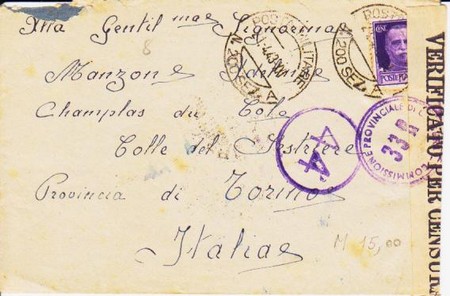 Alla Gentil.mae Signorina
Manzone
Champlas du Cole
Colle del Sestriere
Provincia di Torino
Italia
M 15,00
8
POSTA MILITARE
N. 200 SEZ. A
POSTE
N. 200 SEZ. A
4A
COMMISSIONE PROVINCIALE DI
33R
VERIFICATO PER CENSURA